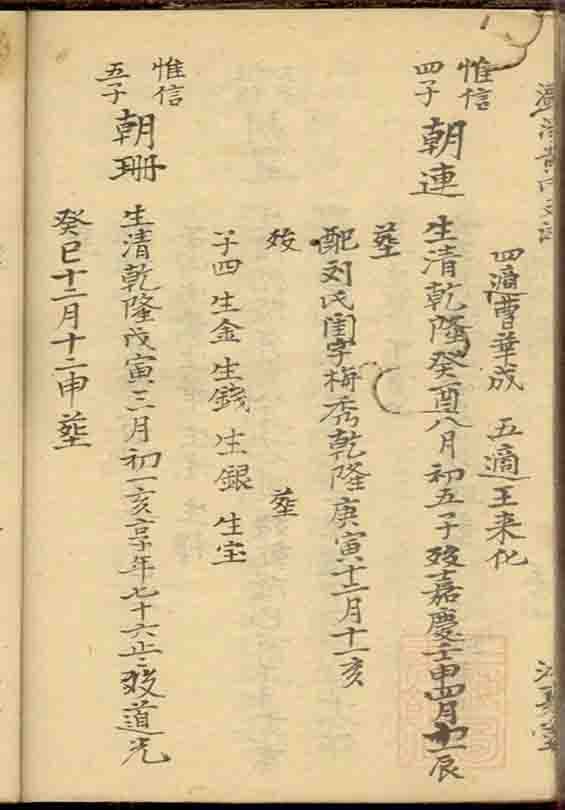 四適曹華成 五適王来化
惟信
四子
朝連
生清乾隆癸酉八月初五子歿嘉慶壬申四月十一辰
塟
配刘氏閨字梅秀乾隆庚寅十二月十一亥
歿 塟
子四 生金 生錢 生銀 生宝
惟信
五子
朝珊
生清乾隆戊寅三月初一亥享年七十六止歿道光
癸巳十二月十二申塟